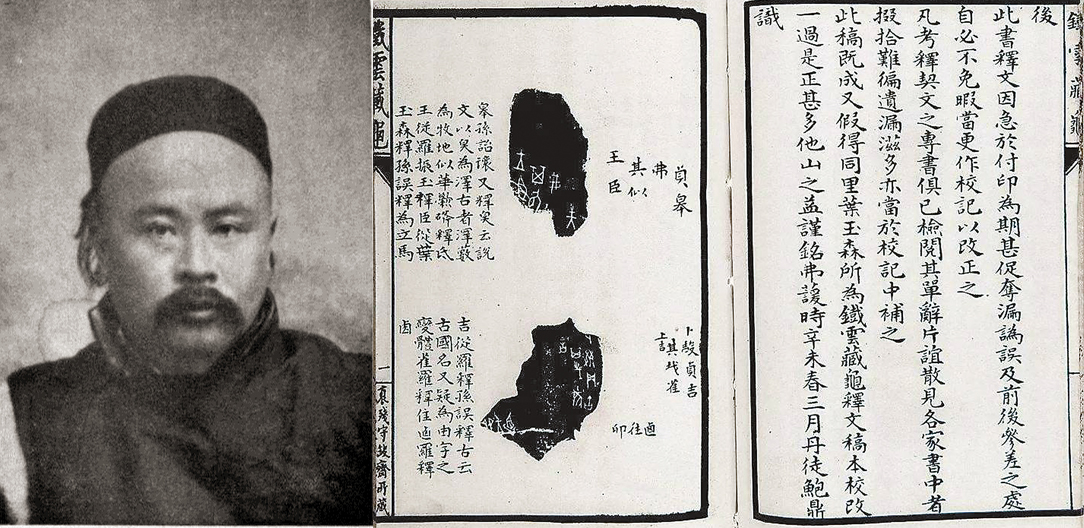 鐵雲藏龜
後
此書釋文因急於付印為期甚促奪漏譌誤及前後參差之處
自必不免暇當更作校記以改正之
凡考釋契文之專書俱已檢閱其單辭片誼散見各家書中者
掇拾難徧遺漏滋多亦當於校記中補之
此稿既成又假得同里葉玉森所為鐵雲藏龜釋文稿本校改
一過是正甚多他山之益謹銘弗諼時辛未春三月丹徒鮑鼎
識
貞皋
弗
其以
王臣
皋孫詒讓又釋臭云說
文以臭為澤古者澤藪
為牧地似華釋氐
王從羅振玉釋臣從葉
玉森釋孫誤釋為立馬
卜貞吉
其雀
往
卯
吉從羅釋孫誤釋古云
古國名又疑為由字之
變體雀羅釋住羅釋
卣
鐵雲藏龜
一
殘守缺齋所藏